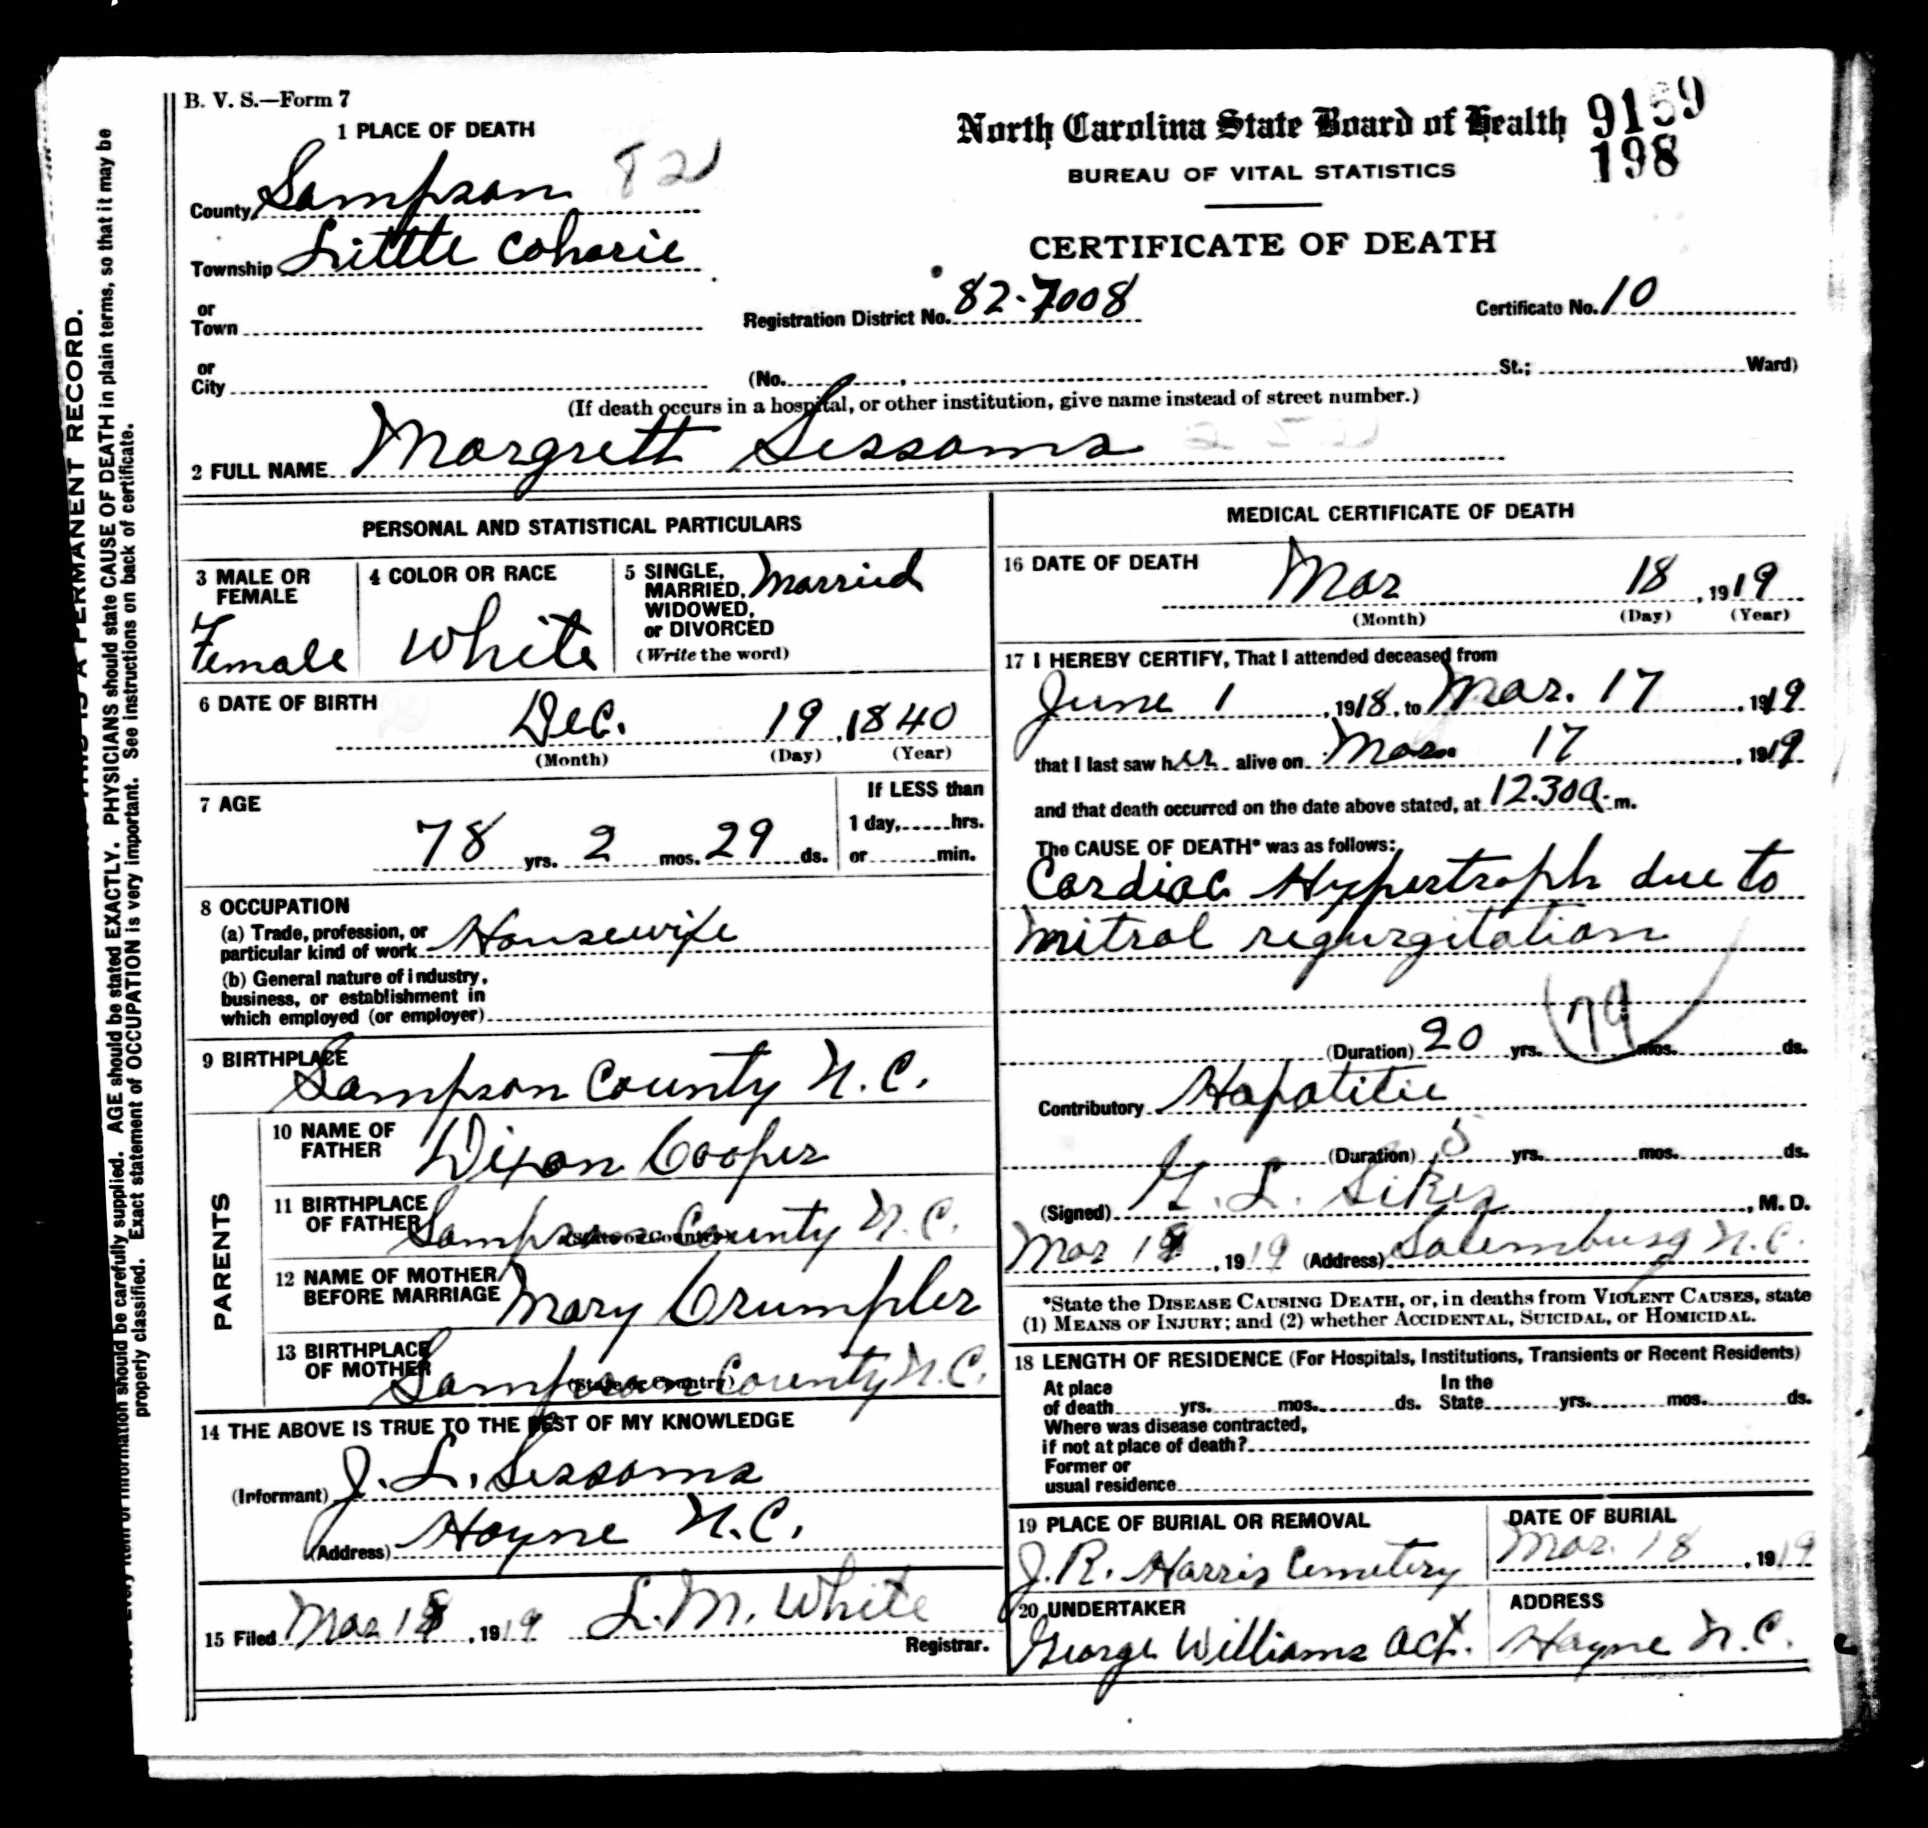 B. V. S.—Form 7
1 PLACE OF DEATH
North Carolina State Board of Health
9159
198
BUREAU OF VITAL STATISTICS
CERTIFICATE OF DEATH
County Sampson 82
Township Little Coharie
or Town
Registration District No. 82-7008
Certificate No. 10
or City
(No. , St.; Ward)
(If death occurs in a hospital, or other institution, give name instead of street number.)
2 FULL NAME Margrett Sessoms
PERSONAL AND STATISTICAL PARTICULARS
3 MALE OR FEMALE
Female
4 COLOR OR RACE
White
5 SINGLE, MARRIED, WIDOWED, or DIVORCED
(Write the word)
Married
6 DATE OF BIRTH
Dec. 19, 1840
(Month) (Day) (Year)
7 AGE
78 yrs. 2 mos. 29 ds.
If LESS than
1 day, hrs.
or min.
8 OCCUPATION
(a) Trade, profession, or
particular kind of work Housewife
(b) General nature of industry,
business, or establishment in
which employed (or employer)
9 BIRTHPLACE
Sampson County N.C.
PARENTS
10 NAME OF FATHER Dixon Cooper
11 BIRTHPLACE OF FATHER Sampson County N.C.
(State or Country)
12 NAME OF MOTHER BEFORE MARRIAGE Mary Crumpler
13 BIRTHPLACE OF MOTHER Sampson County N.C.
(State or Country)
14 THE ABOVE IS TRUE TO THE BEST OF MY KNOWLEDGE
(Informant) J. L. Sessoms
(Address) Hayne N.C.
15 Filed Mar 18, 1919 L. M. White
Registrar.
MEDICAL CERTIFICATE OF DEATH
16 DATE OF DEATH
Mar 18, 1919
(Month) (Day) (Year)
17 I HEREBY CERTIFY, That I attended deceased from
June 1, 1918, to Mar. 17, 1919
that I last saw her alive on Mar. 17, 1919
and that death occurred on the date above stated, at 12.30a.m.
The CAUSE OF DEATH* was as follows:
Cardiac Hypertroph due to
mitral regurgitation
79
(Duration) 20 yrs. mos. ds.
Contributory Hapatitie
(Duration) 5 yrs. mos. ds.
(Signed) G. L. Sikes, M. D.
Mar 18, 1919 (Address) Salemburg N.C.
*State the DISEASE CAUSING DEATH, or, in deaths from VIOLENT CAUSES, state
(1) MEANS OF INJURY; and (2) whether ACCIDENTAL, SUICIDAL, or HOMICIDAL.
18 LENGTH OF RESIDENCE (For Hospitals, Institutions, Transients or Recent Residents)
At place of death yrs. mos. ds. In the State yrs. mos. ds.
Where was disease contracted,
if not at place of death?
Former or
usual residence
19 PLACE OF BURIAL OR REMOVAL
J. R. Harris Cemetery
DATE OF BURIAL
Mar. 18, 1919
20 UNDERTAKER
George Williams act.
ADDRESS
Hayne N.C.
THIS IS A PERMANENT RECORD.
Every item of information should be carefully supplied. AGE should be stated EXACTLY. PHYSICIANS should state CAUSE OF DEATH in plain terms, so that it may be
properly classified. Exact statement of OCCUPATION is very important. See instructions on back of certificate.